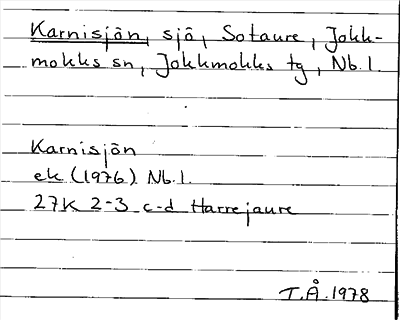 Karnisjön, sjö, Sotaure, Jokk-
mokks sn, Jokkmokks tg, Nb.l.
Karnisjön
ek (1976) Nb.l.
27K 2-3 c-d Harrejaure
T.Å.1978